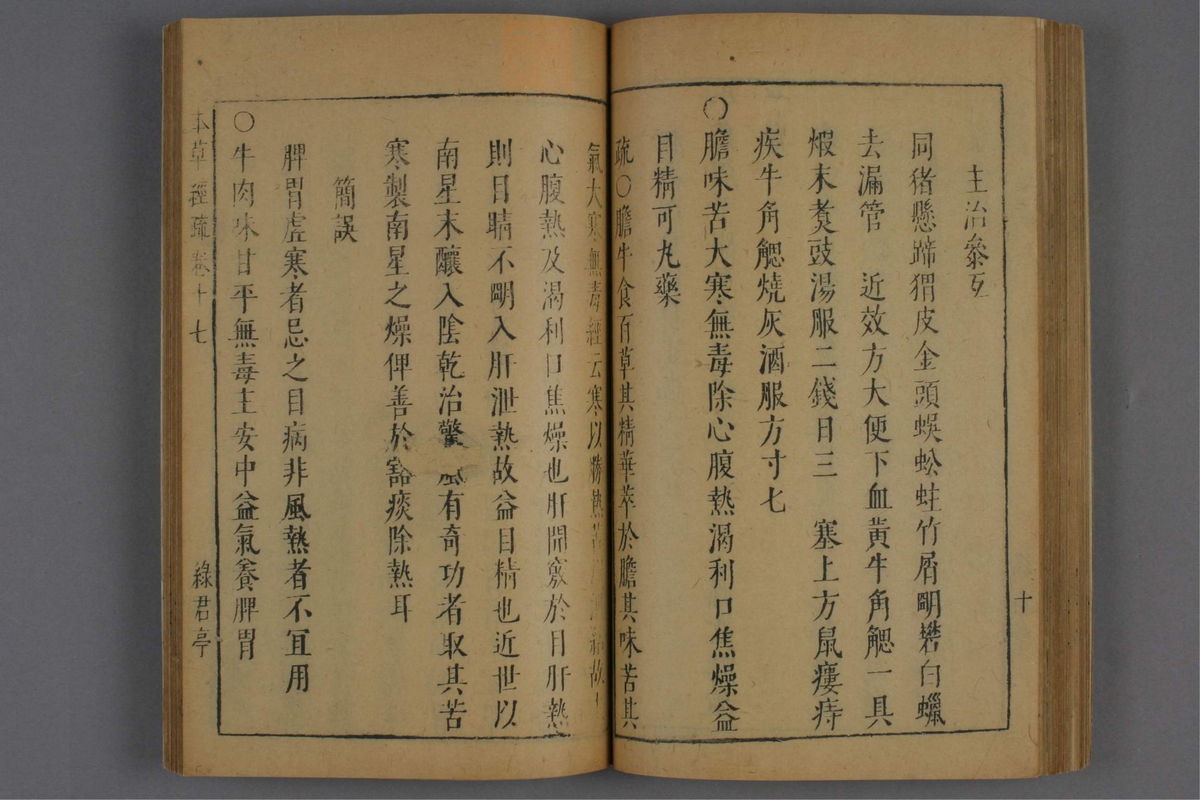 十
主治參互
同猪懸蹄猬皮金頭蜈蚣蛀竹屑明礬白蠟
去漏管　近效方大便下血黃牛角䚡一具
煆末煑豉湯服二錢日三　塞上方鼠瘻痔
疾牛角䚡燒灰酒服方寸匕
〇膽味苦大寒無毒除心腹熱渴利口焦燥益
目精可丸藥
疏〇膽牛食百草其精華萃於膽其味苦其
氣大寒無毒經云寒以勝熱苦
心腹熱及渴利口焦燥也肝開竅於目肝熱
則目睛不明入肝泄熱故益目精也近世以
南星末釀入陰乾治驚風有奇功者取其苦
寒製南星之燥俾善於豁痰除熱耳
簡誤
脾胃虛寒者忌之目病非風熱者不宜用
〇牛肉味甘平無毒主安中益氣養脾胃
本草經疏卷十七
綠君亭